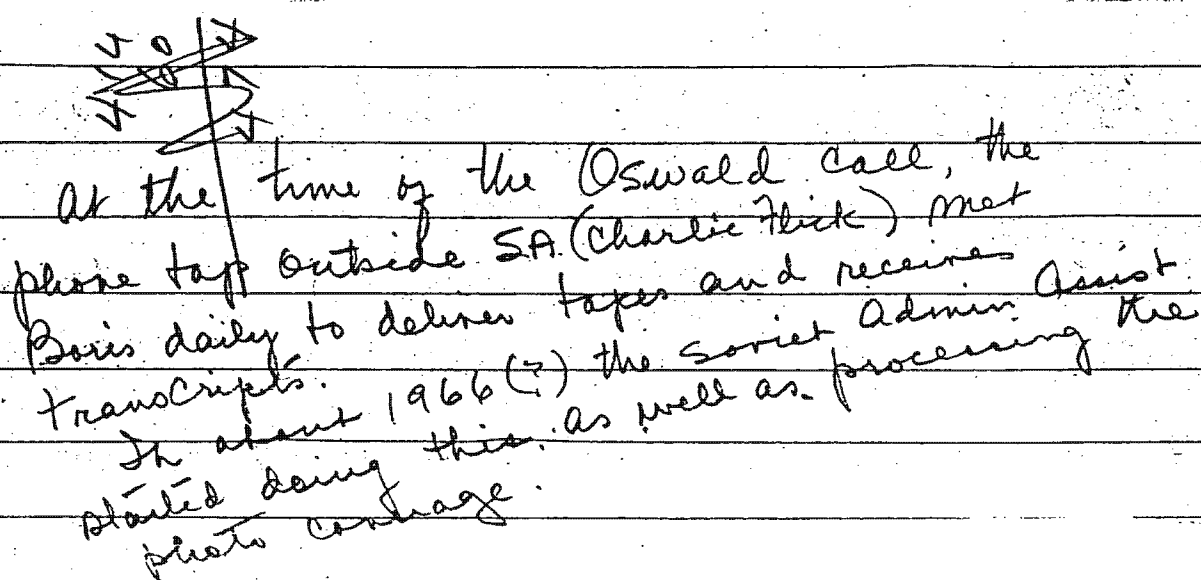 At the time of the Oswald call, the
phone tap outside SA (Charlie Flick) met
Boris daily to deliver tapes and receives
transcripts.
In about 1966 (?) the Soviet Admin Assist
started doing this, as well as processing the
photo coverage.